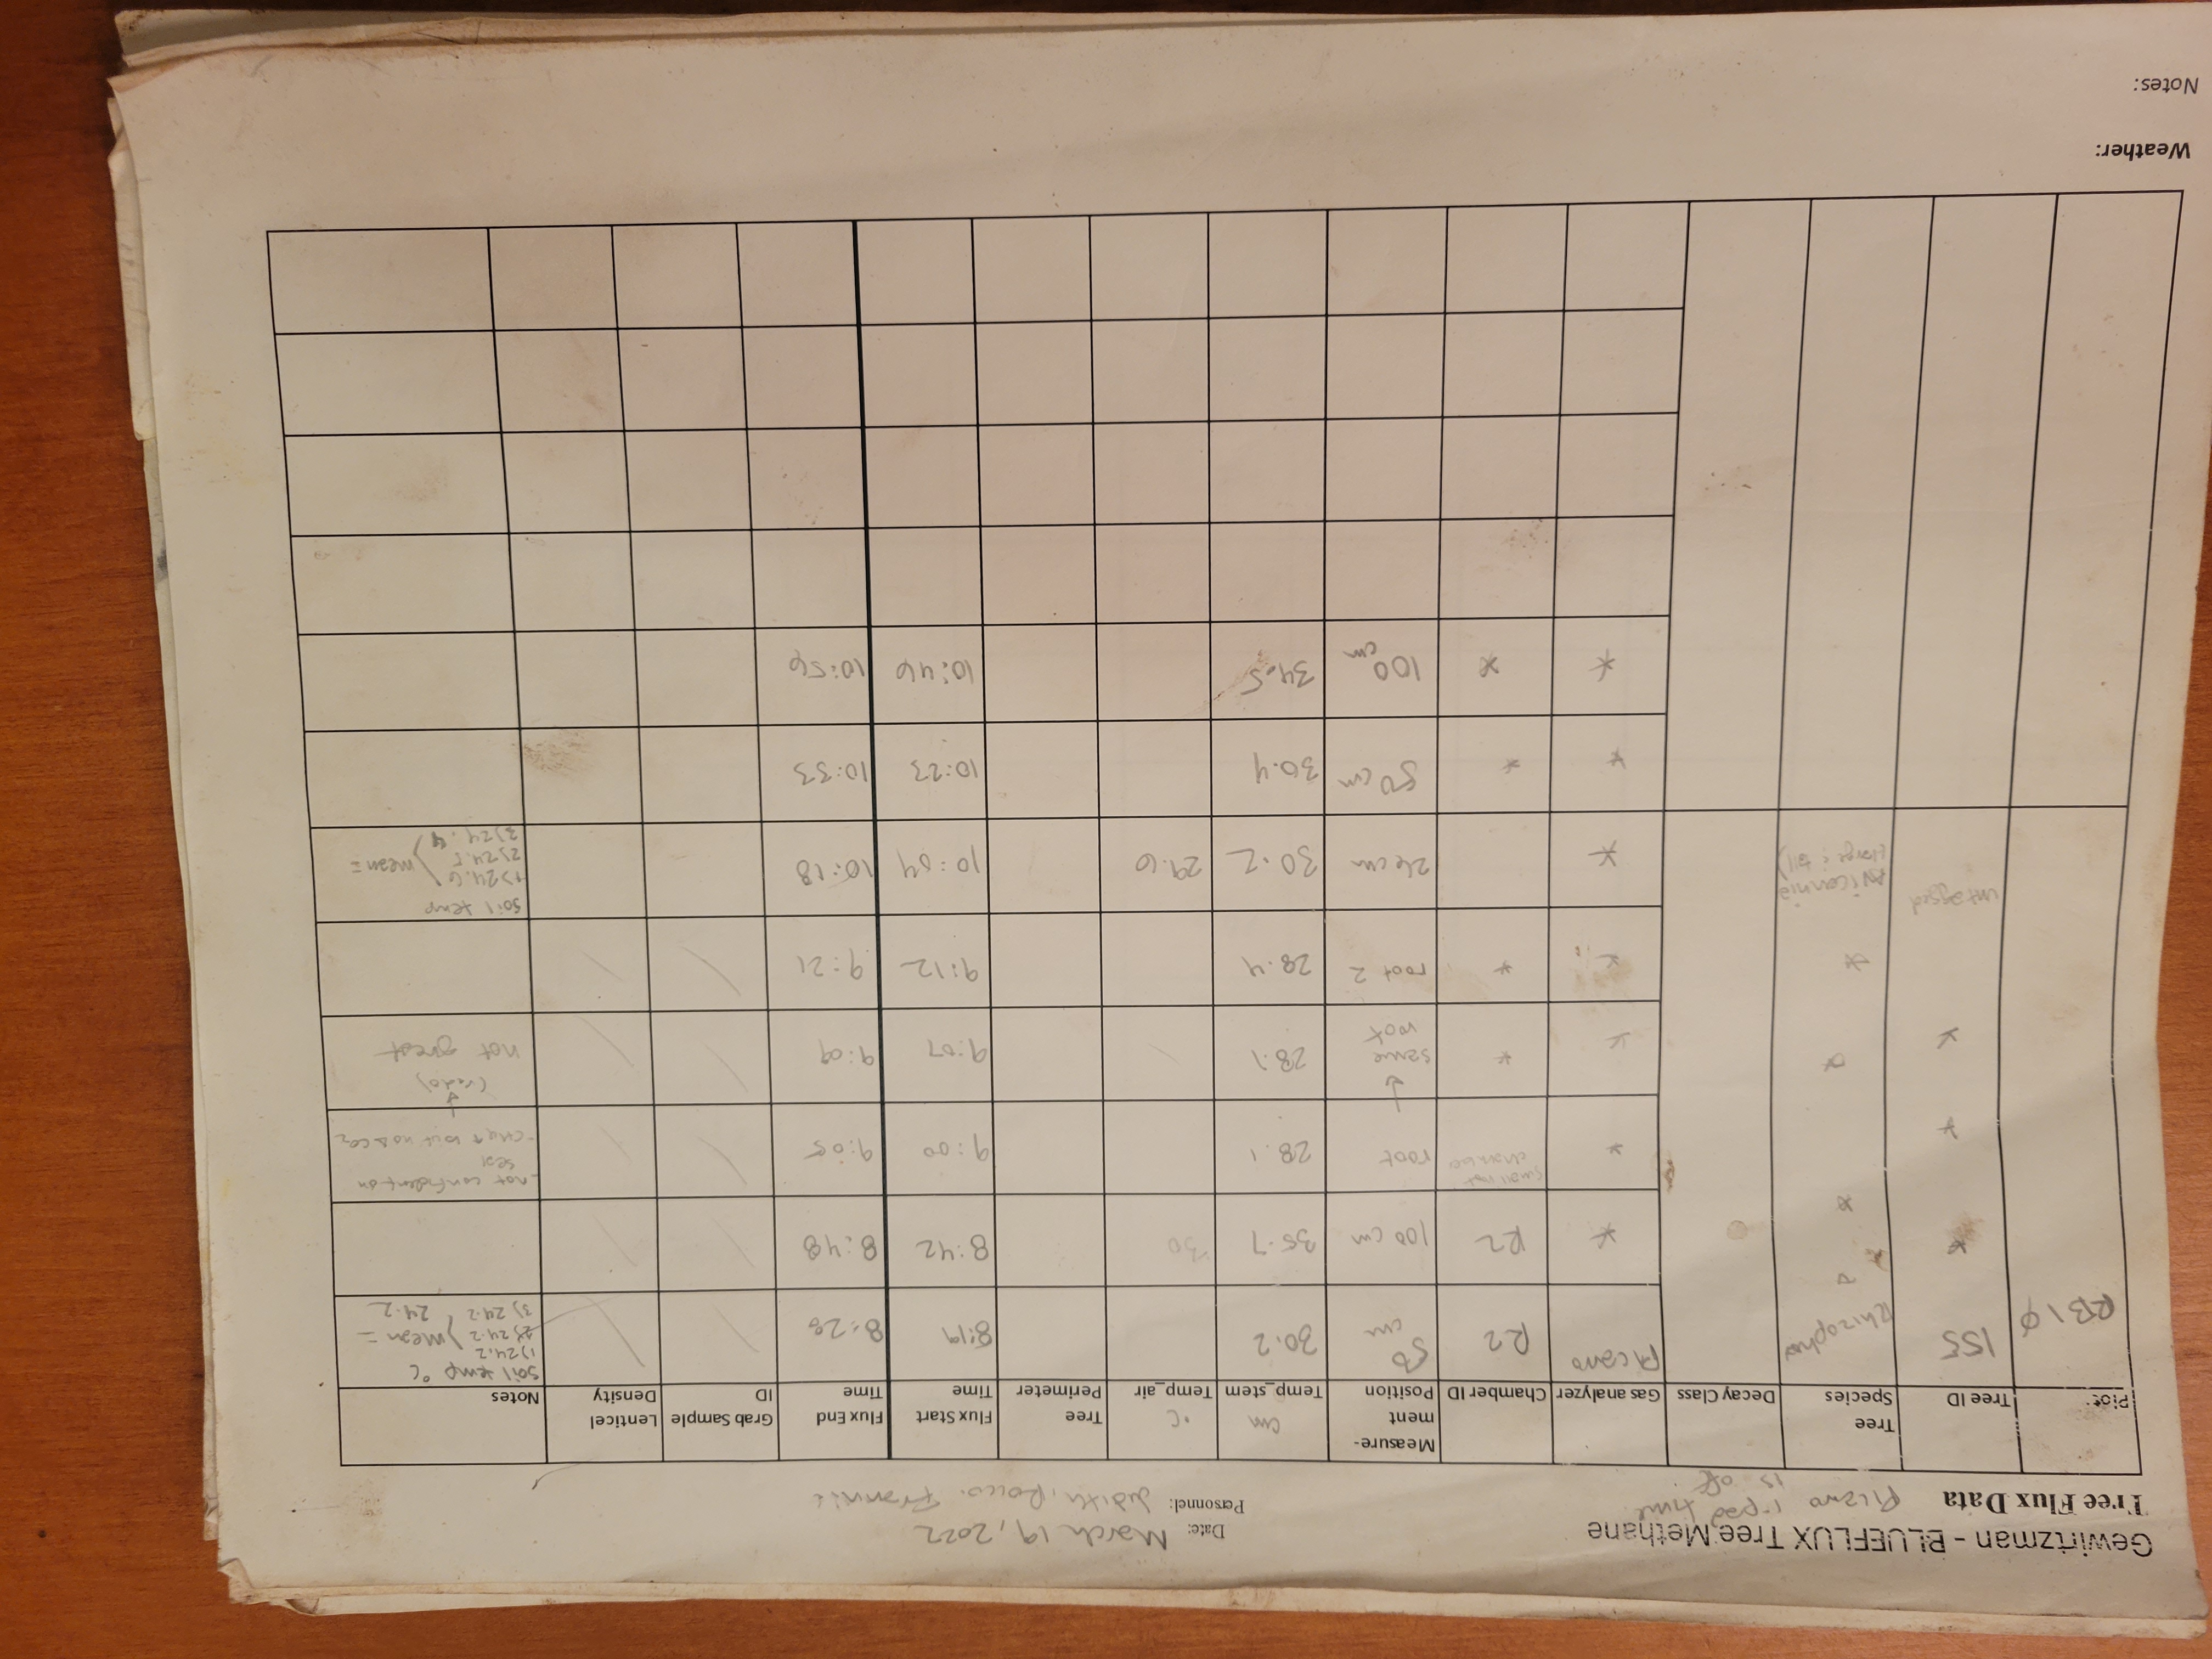 Gewirtzman - BLUEFLUX Tree Methane
Tree Flux Data
Picarro i-pad time
is off
Date: March 19, 2022
Personnel: Judith, Rocco,
cm
°C
Plot: Tree ID Tree Species Decay Class Gas analyzer Chamber ID Measure-ment Position Temp_stem Temp_air Tree Perimeter Flux Start Time Flux End Time Grab Sample ID Lenticel Density Notes
RB1Φ 155 Rhizophora Picarro R2 50 cm 30.2 8:19 8:28 / / soil temp °C
1) 24.2
2) 24.2 } mean =
3) 24.2 24.2
* * R2 100 cm 35.7 30 8:42 8:48 / /
* * * small root chamber root 28.1 9:00 9:05 / / - not confident on
seal
- CH4 ↑ but no Δ CO2
* * * * ↓ same root 28.1 9:07 9:09 / / (redo)
not great
* * * root 2 28.4 9:12 9:21 / /
untagged Avicennia (large & tall) * 26 cm 30.2 29.6 10:04 10:18 soil temp
1) 24.6
2) 24.5 } mean =
3) 24.4
* * 50 cm 30.4 10:23 10:33
* * 100 cm 34.5 10:46 10:56
Weather:
Notes: